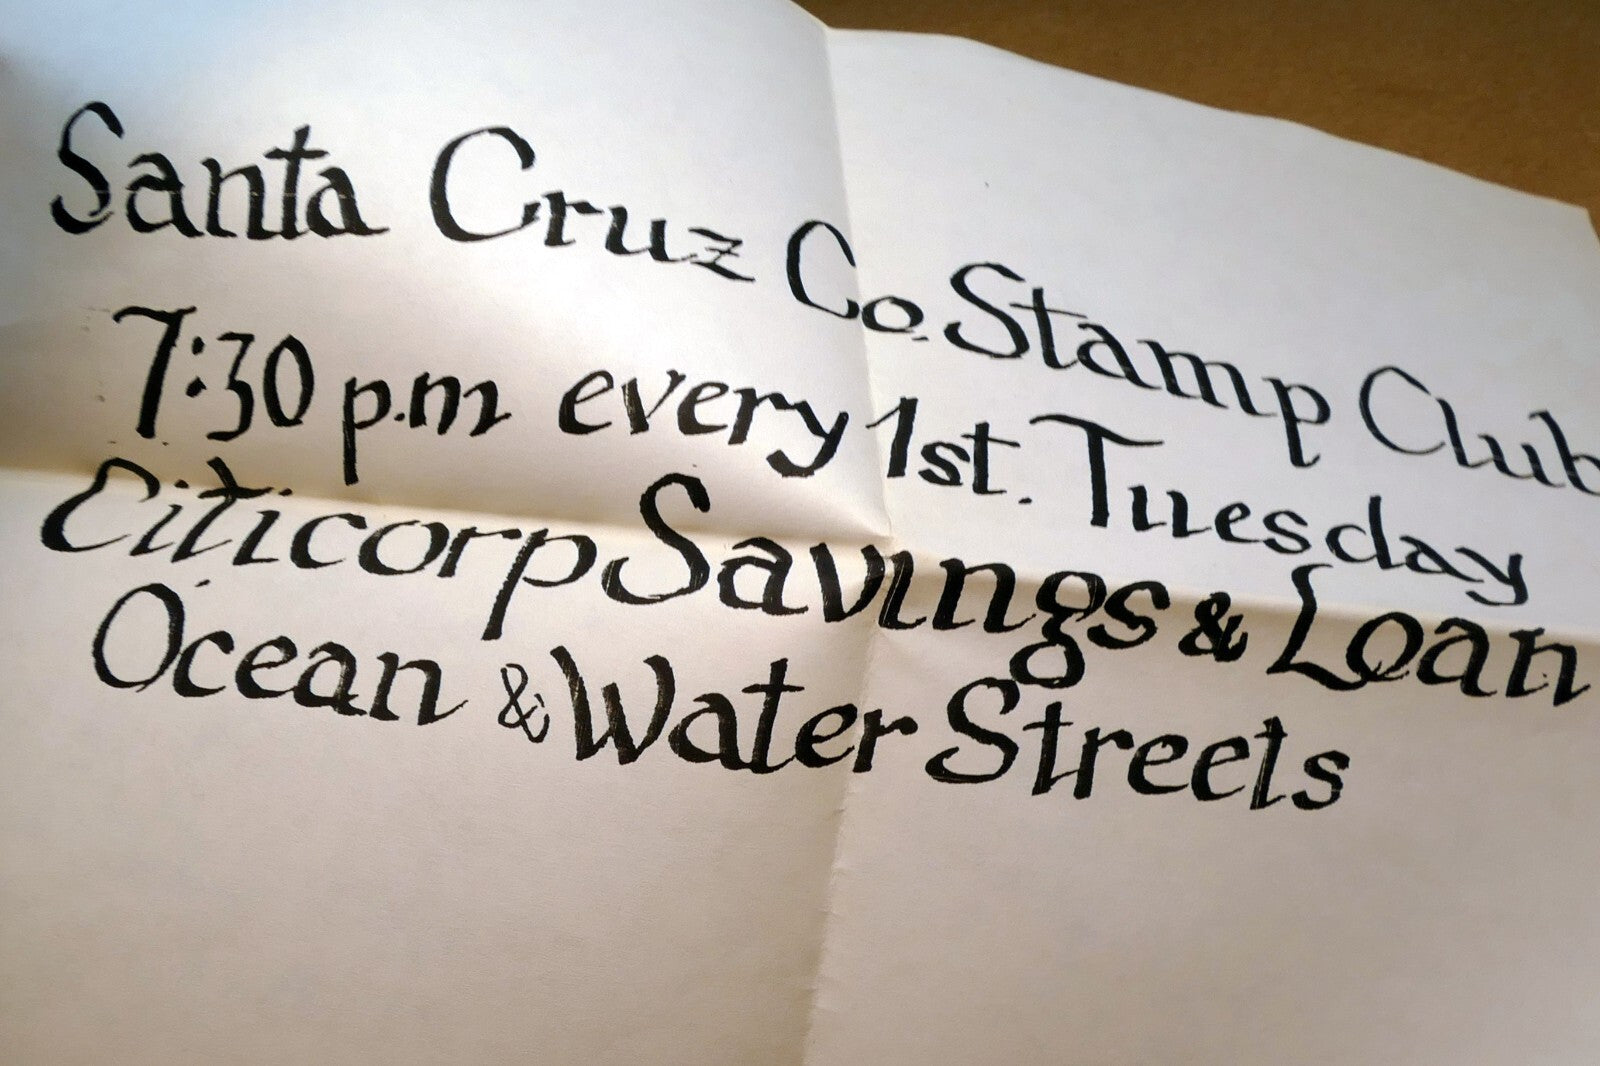 Santa Cruz Co. Stamp Club
7:30 p.m every 1st. Tuesday
Citicorp Savings & Loan
Ocean & Water Streets